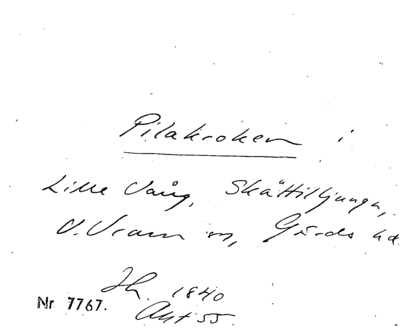 Pilakroken i
Lille Vång, Skättilljunga,
V. Vram sn, Gärds hd.
Jh. 1840
Akt 55.
Nr 7767.